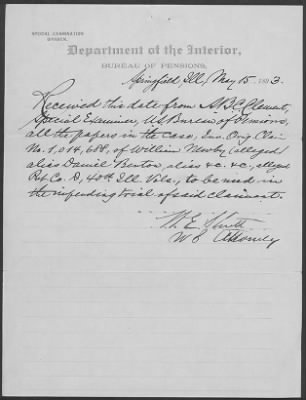 SPECIAL EXAMINATION
DIVISION.
Department of the Interior,
BUREAU OF PENSIONS,
Springfield, Ill, May 15, 1893.
Received this date from A.B.C. Clement,
Special Examiner, US Bureau of Pensions,
all the papers in the case, Inv. Orig Clai
No. 1,014,688, of William Newby (alleged)
alias Daniel Benton, alias &c. &c, alleged
Pvt Co. D, 40th Ill. Vols.; to be used in
the impending trial of said claimant.
W. E. Shutt
U S Attorney